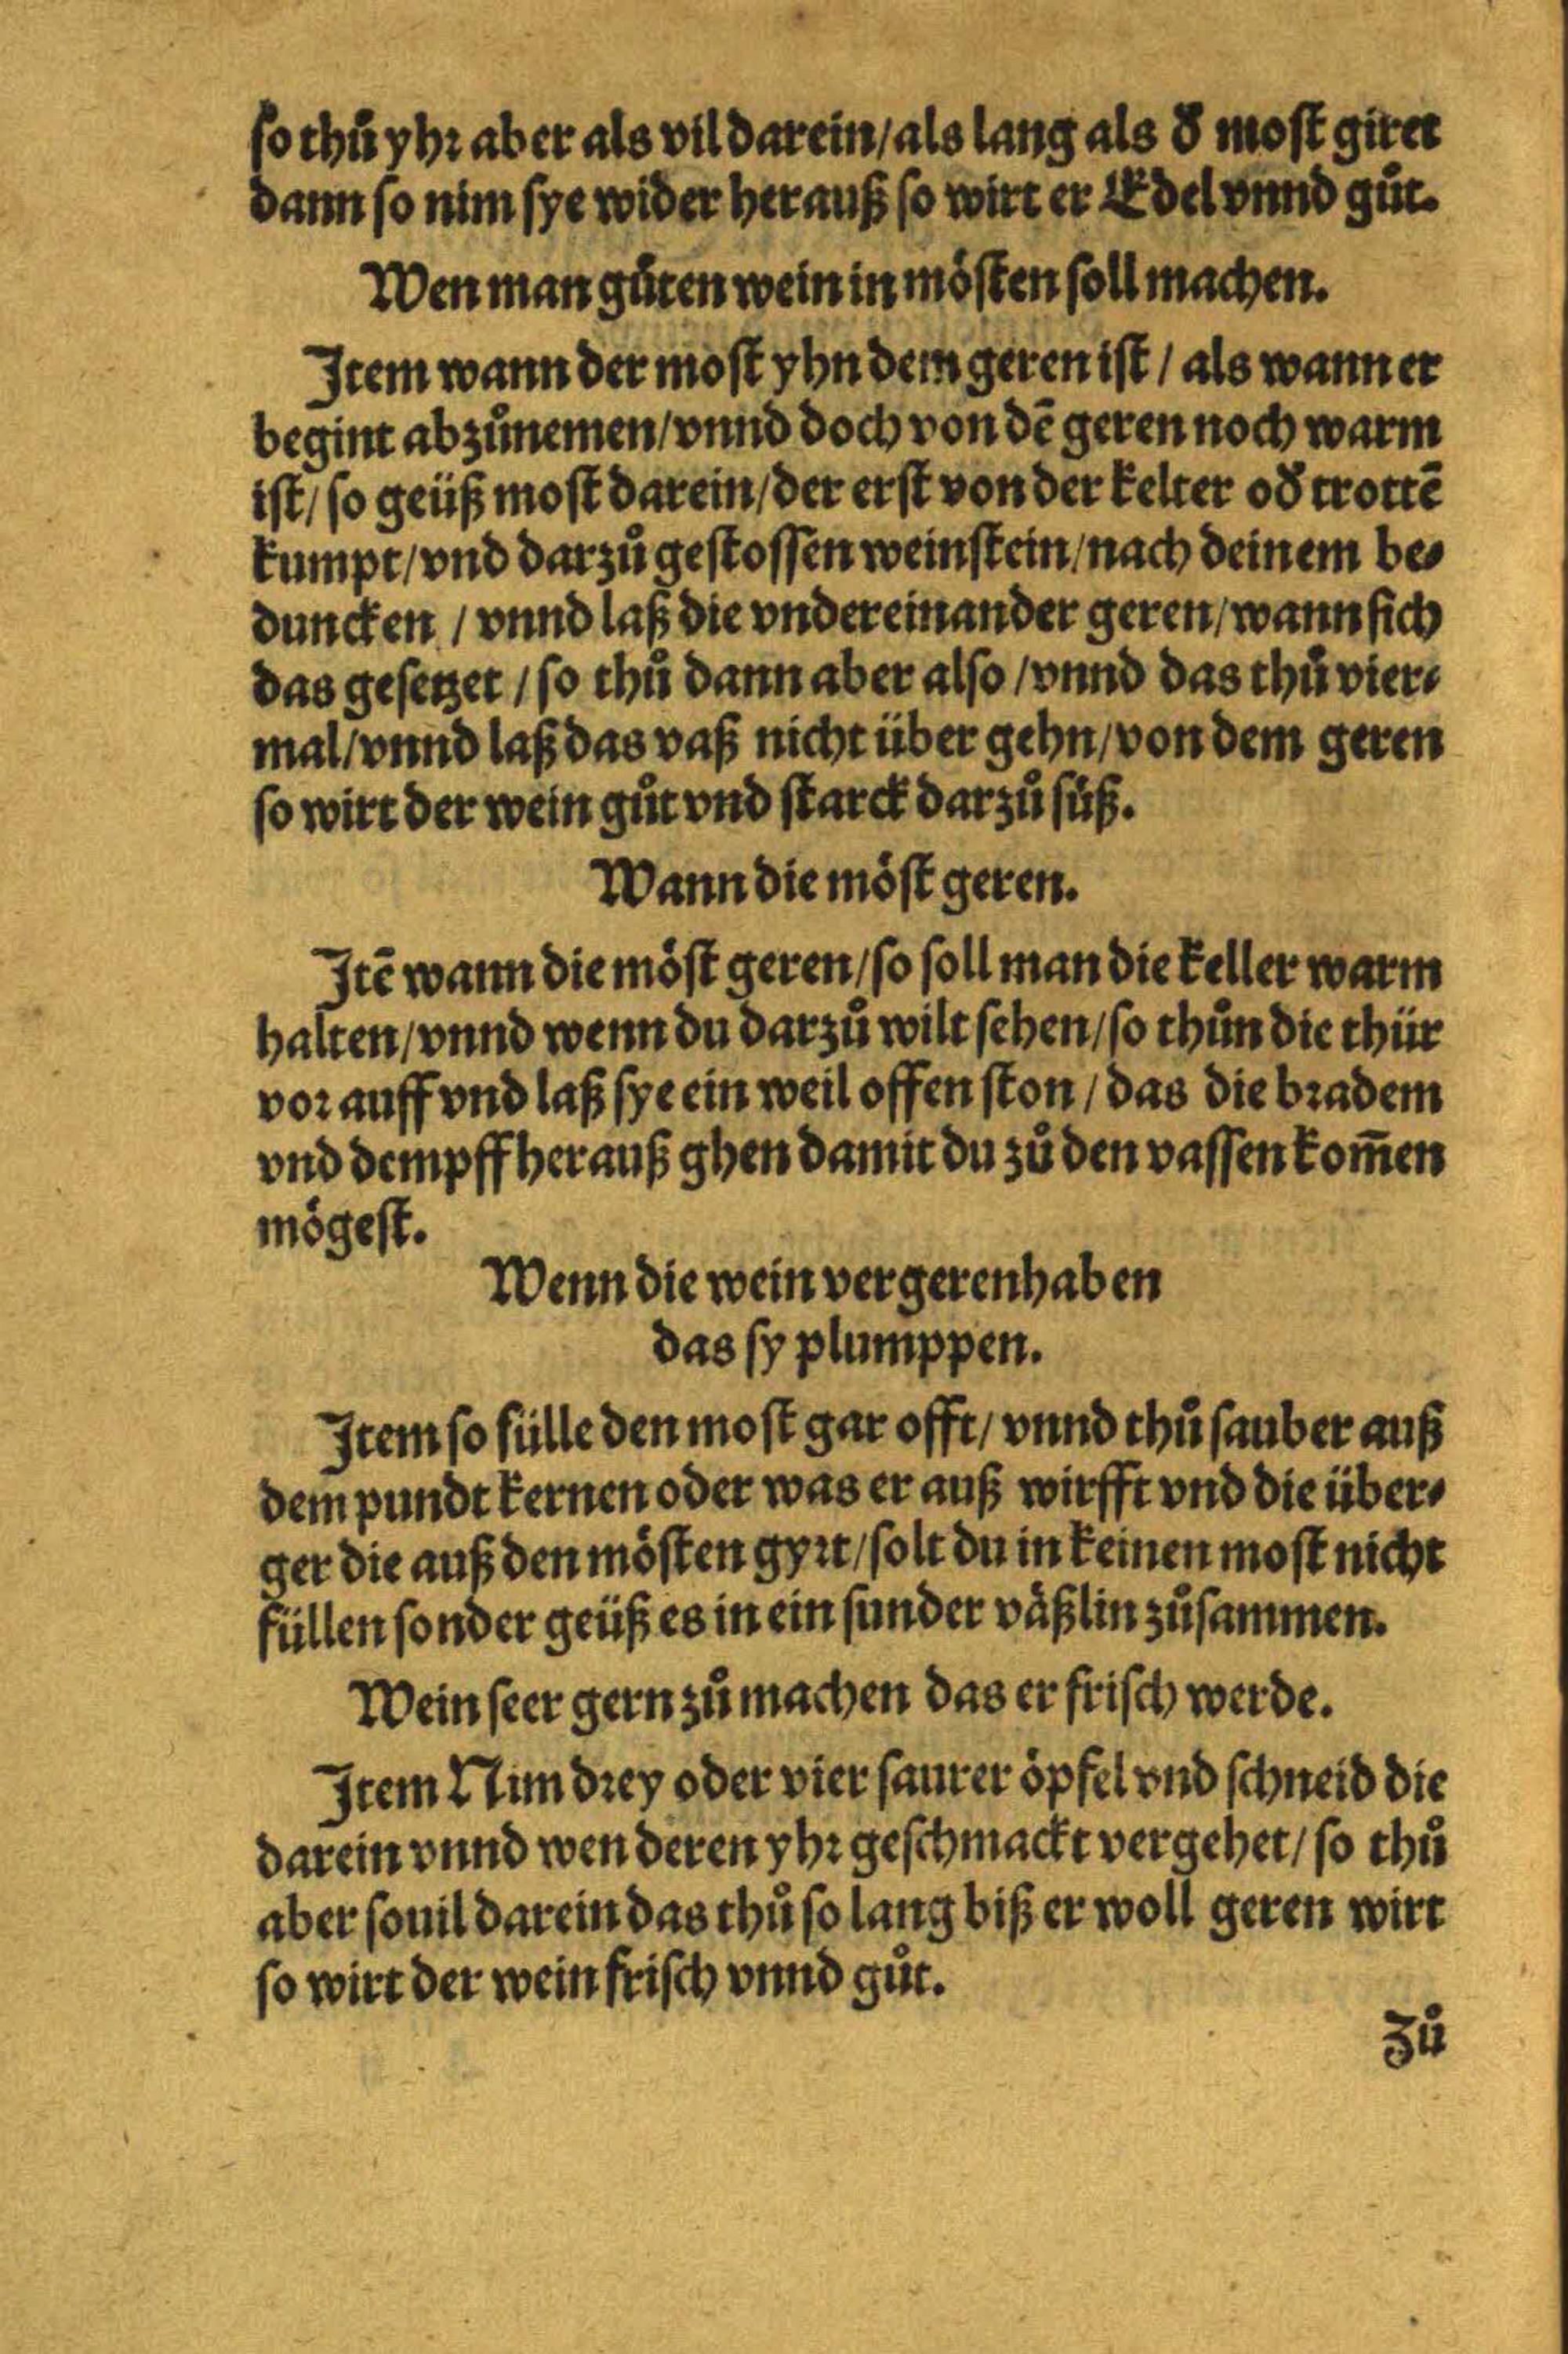 so thuͦ yhr aber als vil darein/als lang als ð most giret
dann so nim sye wider herauß so wirt er Edel vnnd guͦt.
Wen man guͦten wein in mösten soll machen.
Item wann der most yhn dem geren ist / als wann er
begint abzuͦnemen/vnnd doch von dē geren noch warm
ist/ so geüß most darein/der erst von der kelter oð trottē
kumpt/vnd darzuͦ gestossen weinstein/nach deinem be⸗
duncken / vnnd laß die vndereinander geren/wann sich
das gesetzet / so thuͦ dann aber also /vnnd das thuͦ vier⸗
mal/vnnd laß das vaß nicht über gehn/von dem geren
so wirt der wein guͦt vnd starck darzuͦ süß.
Wann die möst geren.
Itē wann die möst geren/so soll man die keller warm
halten/vnnd wenn du darzuͦ wilt sehen/so thuͦn die thür
vor auff vnd laß sye ein weil offen ston / das die bradem
vnd dempff herauß ghen damit du zuͦ den vassen kom̄en
mögest.
Wenn die wein vergerenhaben
das sy plumppen.
Item so fülle den most gar offt/ vnnd thuͦ sauber auß
dem pundt kernen oder was er auß wirfft vnd die über⸗
ger die auß den mösten gyrt/solt du in keinen most nicht
füllen sonder geüß es in ein sunder väßlin zuͦsammen.
Wein seer gern zuͦ machen das er frisch werde.
Item Nim drey oder vier saurer öpfel vnd schneid die
darein vnnd wen deren yhr geschmackt vergehet/ so thuͦ
aber souil darein das thuͦ so lang biß er woll geren wirt
so wirt der wein frisch vnnd guͦt.
Zuͦ